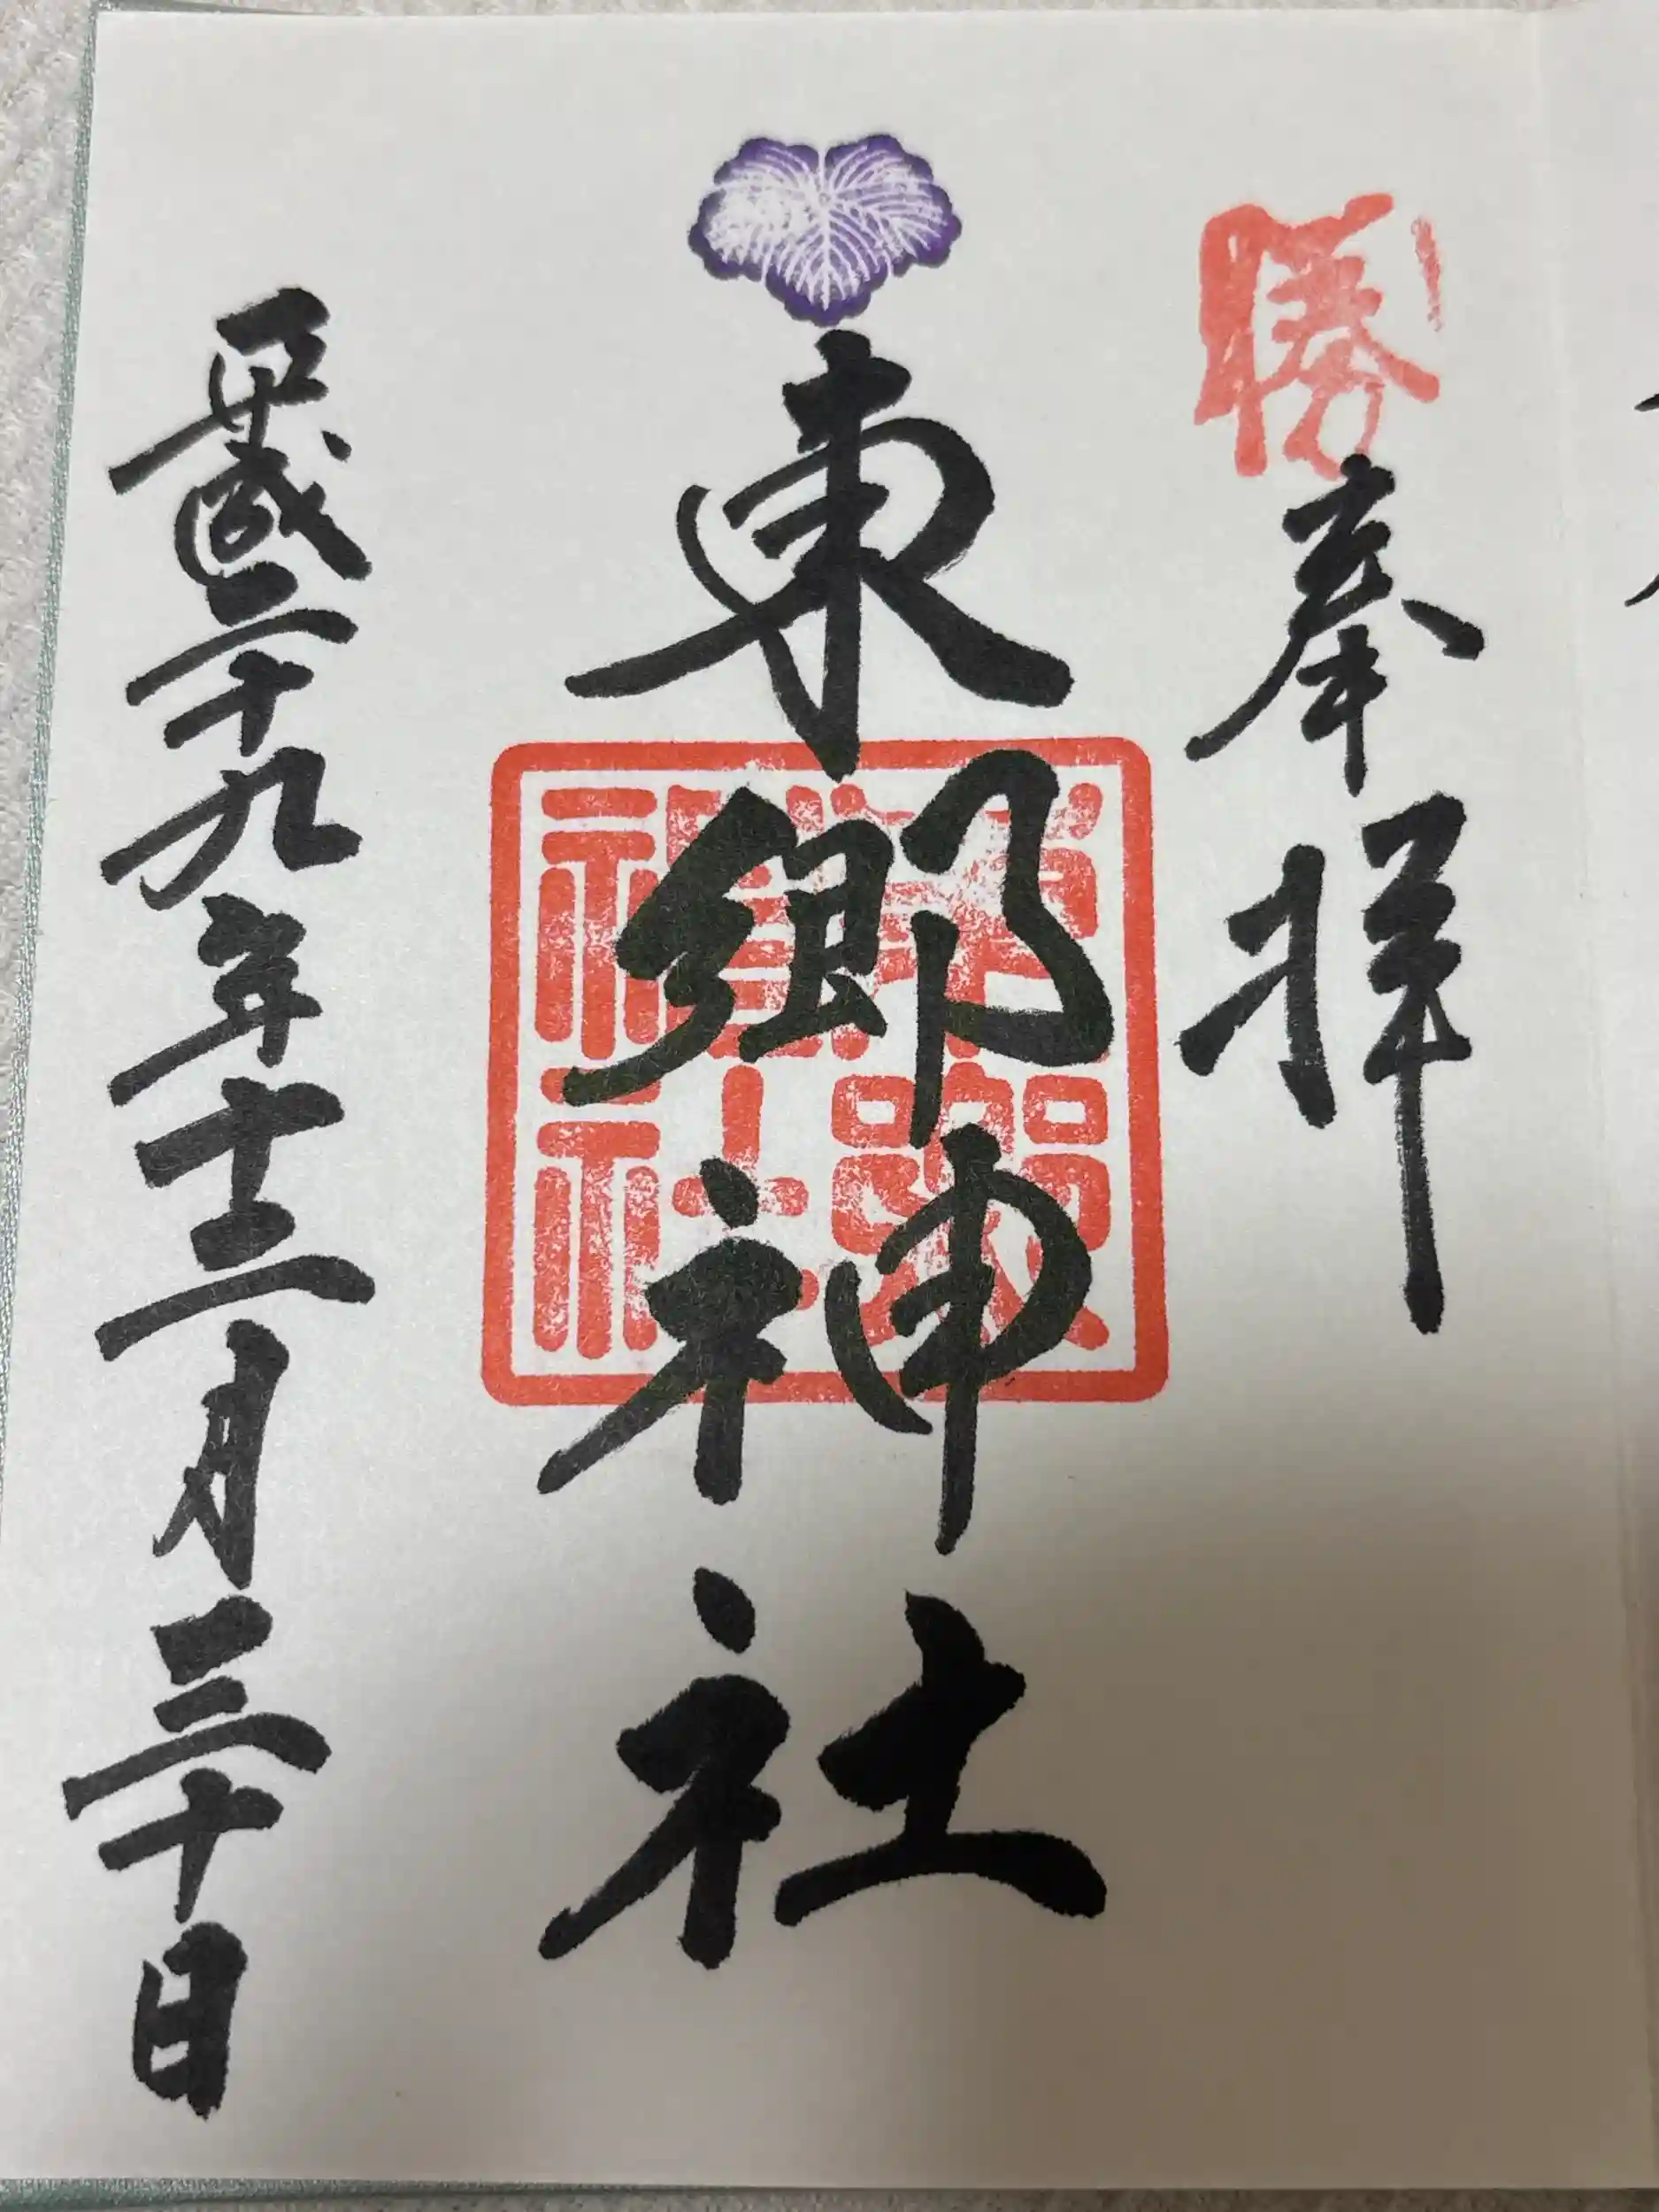 勝
奉拝
東郷神社
神社
平成二十九年十二月三十日